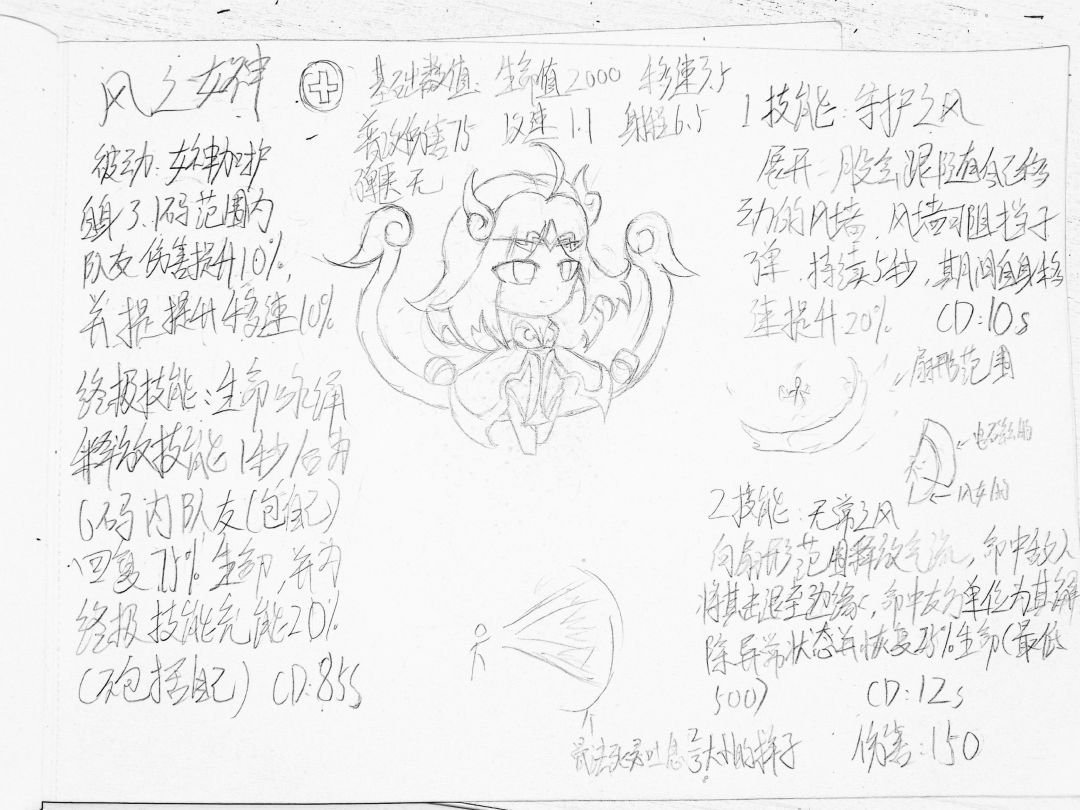 风之女神
基础数值：生命值2000 移速7.5
普攻伤害75 攻速1.1 射程6.5
弹夹无
被动：女神加护
自身3.1码范围内
队友伤害提升10%，
并提提升移速10%
终极技能：生命咏诵
释放技能1秒后为
6码内队友(包自己)
回复75%生命，并为
终极技能充能20%
(不包括自己) CD:85s
1技能：守护之风
展开一股会跟随自己移
动的风墙，风墙可阻挡子
弹，持续5秒，期间自身移
速提升20% CD:10s
扇形范围
风女的
2技能：无常之风
向扇形范围释放气流，命中敌人
将其击退至边缘，命中友方单位为其解
除异常状态并恢复25%生命(最低
500) CD:12s
伤害:150
大小的样子